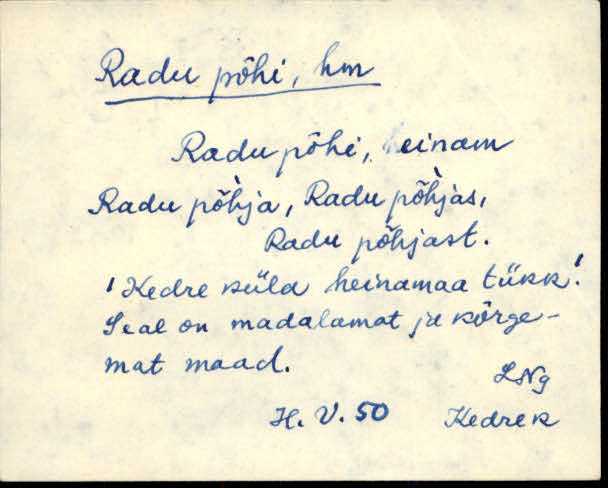 Radu põhi, hm
Radu põhi, heinam
Radu põ̀hja, Radu põ̀hjas,
Radu põhjast.
'Kedre küla heinamaa tükk!'
Seal on madalamat ja kõrge-
mat maad.
LNg
H. V. 50 Kedrek